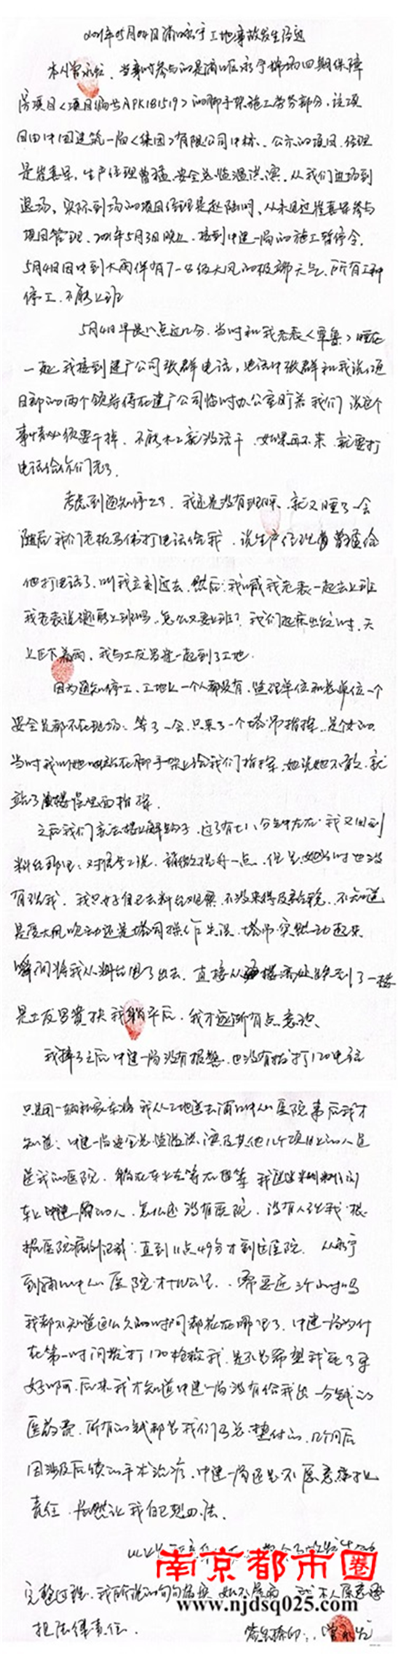 2021年05月04日浦口永宁工地事故发生经过
本人曾永，当时参与的是浦口区永宁棉场四期保障
房项目《项目编号APK181519》的脚手架施工劳务部分，该项
目由中国建筑一局《集团》有限公司中标。公示的项目经理
是崔喜，生产经理曹猛，安全总监温洪演。从我们进场到
退场，实际到场的项目经理是赵陆时，从未见过崔喜参与
项目管理。2021年5月3日晚上，接到中建一局的施工暂停令。
5月4日因中到大雨伴有7-级大风的极端天气，所有工种
停工，不能上班
5月4日早晨八点，当时和我老表《覃鲁》睡在
一起，我接到建广公司张群电话，电话中张群和我说，项
目部的两个领导待在建广公司临时办公室盯着我们，说这个
事情必须要干掉，不能木工就没活干，如果再不来，就要打
电话给你们老了。
考虑到通知停工了，我还是没有理睬，就又睡了一会
随后我们老板马伟打电话给我，说生产经理曹猛给
他打电话了，叫我立刻过去，然后，我喊我老表一起去上班
我老表说还能上班吗，怎么又要上班？我们起床出门时，天
上正下着雨，我与工友一起到了工地。
因为通知停工，工地上一个人都没有，监理单位和总单位一个
安全员都不在现场。等了一会，只来了一个塔吊指挥，是个女的，
当时我叫她站在脚手架上给我们指挥，她说她不敢，就
站了楼里面指挥。
之后我们去搭解钩子，过了有七八分钟左右，我又回到
料台那里，对信号工说，请做慢一点，但是她当时也没
有理我，我只好自己去料台观察，不知道
是受大风吹动还是塔司操作失误，塔吊突然动起来
瞬间将我从料台甩了出去，直接从楼高处跌到了一楼
是工友覃费扶我躺平后，我才逐渐有点意识。
我摔了之后中建一局没有报警，也没有拨打120电话
只用一辆私家车将我从工地送去浦口中心医院，事后我才
知道，中建一局安全总监温洪演及其他几个项目上的人是
送我的医院，躺在车上左等右等，我迷迷糊糊问
车上中建一局的人，怎么还没有医院，没有人理我，根
据医院病例记载：直到11点49分才到达医院，从永宁
到浦口中心医院才十几公里，需要近3个小时吗
我都不知道这么久的时间都花在哪里了，中建一局为什
在第一时间拨打120抢救我，是不是希望我死了更
好啊，后来我才知道中建一局没有给我出一分钱的
医药费，所有的钱都是我们马总垫付的，几个月后
因涉及后续的手术治疗，中建一局还是不愿意承担
责任，依然让我自己想办法。
以上
完整过程，我所说的句句属实，如不属实，我本人愿意
担法律责任。
南京都市圈
www.njdsq025.com